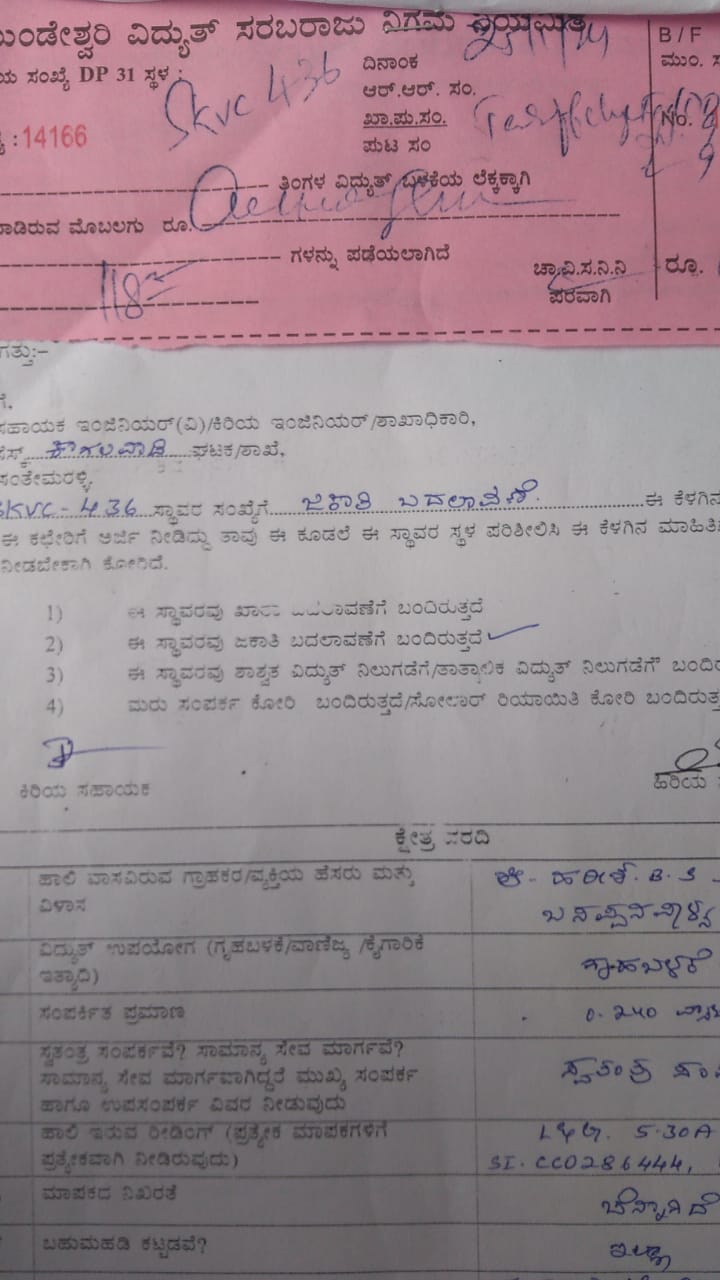 ಮುಂಡೇಶ್ವರಿ ವಿದ್ಯುತ್ ಸರಬರಾಜು ನಿಗಮ ನಿಯಮಿತ
B / F
ಯ ಸಂಖ್ಯೆ DP 31 ಸ್ಥಳ :
SKVC 436
ದಿನಾಂಕ
ಆರ್.ಆರ್. ಸಂ.
ಖಾ.ಪು.ಸಂ.
ಪುಟ ಸಂ
No.
: 14166
ತಿಂಗಳ ವಿದ್ಯುತ್ ಬಳಕೆಯ ಲೆಕ್ಕಕ್ಕಾಗಿ
ಮಾಡಿರುವ ಮೊಬಲಗು ರೂ.
ಗಳನ್ನು ಪಡೆಯಲಾಗಿದೆ
118
ಚಾ.ವಿ.ಸ.ನಿ.ನಿ
ಪರವಾಗಿ
ರೂ.
ಗತ್ತು:-
ಗೆ,
ಸಹಾಯಕ ಇಂಜಿನಿಯರ್(ವಿ)/ಕಿರಿಯ ಇಂಜಿನಿಯರ್/ಶಾಖಾಧಿಕಾರಿ,
ಘಟಕ/ಶಾಖೆ,
ಸಂತೇಮರಳ್ಳಿ.
SKVC-436 ಸ್ಥಾವರ ಸಂಖ್ಯೆಗೆ ಜಕಾತಿ ಬದಲಾವಣೆ. ಈ ಕೆಳಗಿನ
ಈ ಕಛೇರಿಗೆ ಅರ್ಜಿ ನೀಡಿದ್ದು ತಾವು ಈ ಕೂಡಲೆ ಈ ಸ್ಥಾವರ ಸ್ಥಳ ಪರಿಶೀಲಿಸಿ ಈ ಕೆಳಗಿನ ಮಾಹಿತಿ
ನೀಡಬೇಕಾಗಿ ಕೋರಿದೆ.
1) ಈ ಸ್ಥಾವರವು ಖಾತಾ ಬದಲಾವಣೆಗೆ ಬಂದಿರುತ್ತದೆ
2) ಈ ಸ್ಥಾವರವು ಜಕಾತಿ ಬದಲಾವಣೆಗೆ ಬಂದಿರುತ್ತದೆ
3) ಈ ಸ್ಥಾವರವು ಶಾಶ್ವತ ವಿದ್ಯುತ್ ನಿಲುಗಡೆಗೆ/ತಾತ್ಕಾಲಿಕ ವಿದ್ಯುತ್ ನಿಲುಗಡೆಗೆ ಬಂದಿರು
4) ಮರು ಸಂಪರ್ಕ ಕೋರಿ ಬಂದಿರುತ್ತದೆ/ಸೋಲಾರ್ ರಿಯಾಯಿತಿ ಕೋರಿ ಬಂದಿರುತ್ತ
ಕಿರಿಯ ಸಹಾಯಕ
ಹಿರಿಯ
ಕ್ಷೇತ್ರ ವರದಿ
ಹಾಲಿ ವಾಸವಿರುವ ಗ್ರಾಹಕರ/ವ್ಯಕ್ತಿಯ ಹೆಸರು ಮತ್ತು
ವಿಳಾಸ
ಶ್ರೀ. ಹರೀಶ್. B. S
ವಿದ್ಯುತ್ ಉಪಯೋಗ (ಗೃಹಬಳಕೆ/ವಾಣಿಜ್ಯ /ಕೈಗಾರಿಕೆ
ಇತ್ಯಾದಿ)
ಗೃಹಬಳಕೆ
ಸಂಪರ್ಕಿತ ಪ್ರಮಾಣ
0.240
ಸ್ವತಂತ್ರ ಸಂಪರ್ಕವೆ? ಸಾಮಾನ್ಯ ಸೇವ ಮಾರ್ಗವೆ?
ಸಾಮಾನ್ಯ ಸೇವ ಮಾರ್ಗವಾಗಿದ್ದರೆ ಮುಖ್ಯ ಸಂಪರ್ಕ
ಹಾಗೂ ಉಪಸಂಪರ್ಕ ವಿವರ ನೀಡುವುದು
ಸ್ವತಂತ್ರ
ಹಾಲಿ ಇರುವ ರೀಡಿಂಗ್ (ಪ್ರತ್ಯೇಕ ಮಾಪಕಗಳಿಗೆ
ಪ್ರತ್ಯೇಕವಾಗಿ ನೀಡಿರುವುದು)
L&G. 5-30A
SI. CC0286444,
ಮಾಪಕದ ನಿಖರತೆ
ಚೆನ್ನಾಗಿದೆ
ಬಹುಮಹಡಿ ಕಟ್ಟಡವೆ?
ಇಲ್ಲಾ